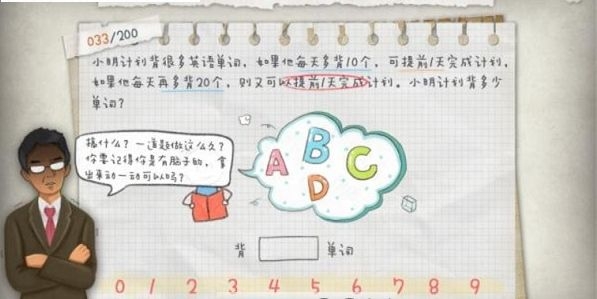 033/200
小明计划背很多英语单词，如果他每天多背10个，可提前1天完成计划，
如果他每天再多背20个，则又可以提前1天完成计划。小明计划背多少
单词？
搞什么？一道题做这么久？
你要记得你是有脑子的，拿
出来动一动可以吗？
A B C D
背 单词
0 1 2 3 4 5 6 7 8 9